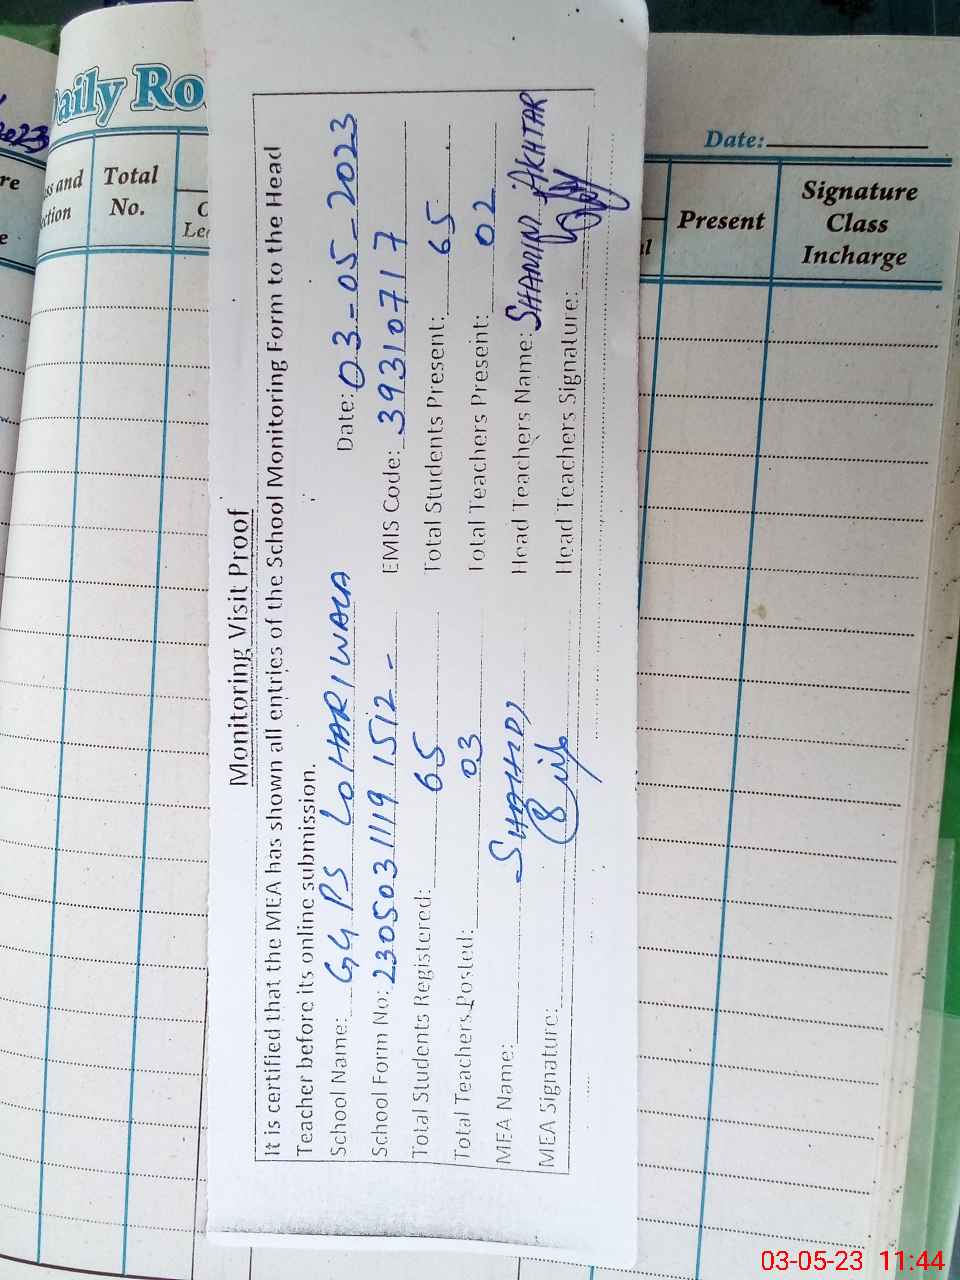 Daily Ro
2023
re
e
ss and
ction
Total
No.
C
Lec
Date:
l
Present
Signature
Class
Incharge
Monitoring Visit Proof
It is certified that the MEA has shown all entries of the School Monitoring Form to the Head
Teacher before its online submission.
School Name: GGPS LOHARIWALA Date: 03-05-2023
School Form No: 2305031119 1512- EMIS Code: 39310717
Total Students Registered: 65 Total Students Present: 65
Total Teachers Posted: 03 Total Teachers Present: 02
MEA Name: SHAHID Head Teachers Name: SHAMIM AKHTAR
MEA Signature: Head Teachers Signature:
03-05-23 11:44